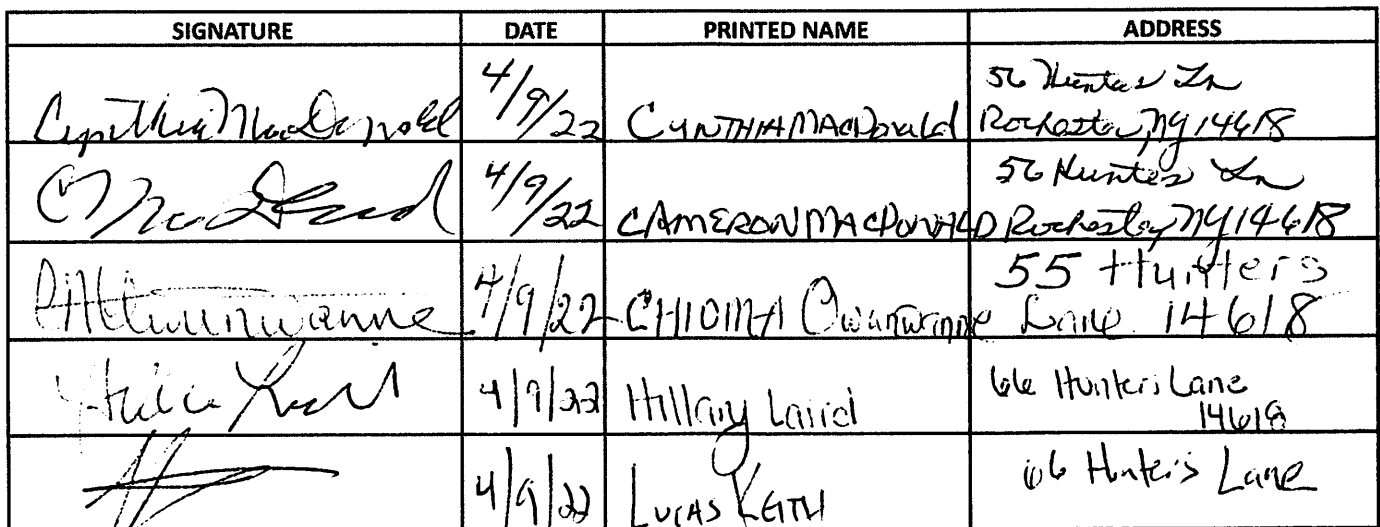 SIGNATURE DATE PRINTED NAME ADDRESS
Cynthia MacDonald 4/9/22 CYNTHIA MACDonald 56 Hunters Ln
Rochester, NY 14618
C MacDonald 4/9/22 CAMERON MACDONALD 56 Hunters Ln
Rochester, NY 14618
4/9/22 CHIOMA Owunwanne 55 Hunters
Lane 14618
4/9/22 Hillary Laird 66 Hunters Lane
14618
4/9/22 LUCAS KEITH 66 Hunter's Lane